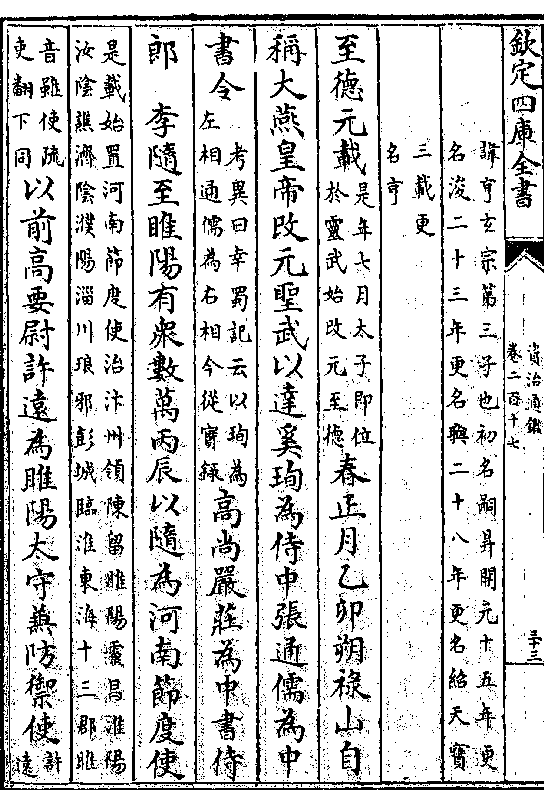 欽定四庫全書
資治通鑑
卷二百十七
三十三
諱亨玄宗第三子也初名嗣昇開元十五年更
名浚二十三年更名璵二十八年更名紹天寶
三載更
名亨
至德元載是年七月太子即位
於靈武始改元至德春正月乙卯朔祿山自
稱大燕皇帝改元聖武以達奚珣為侍中張通儒為中
書令考異曰幸蜀記云以珣為
左相通儒為右相今從實錄高尚嚴莊為中書侍
郎 李隨至睢陽有衆數萬丙辰以隨為河南節度使
是載始置河南節度使治汴州領陳留睢陽靈昌淮陽
汝陰譙濟陰濮陽淄川琅邪彭城臨淮東海十三郡睢
音雖使疏
吏翻下同以前高要尉許遠為睢陽太守兼防禦使許
遠